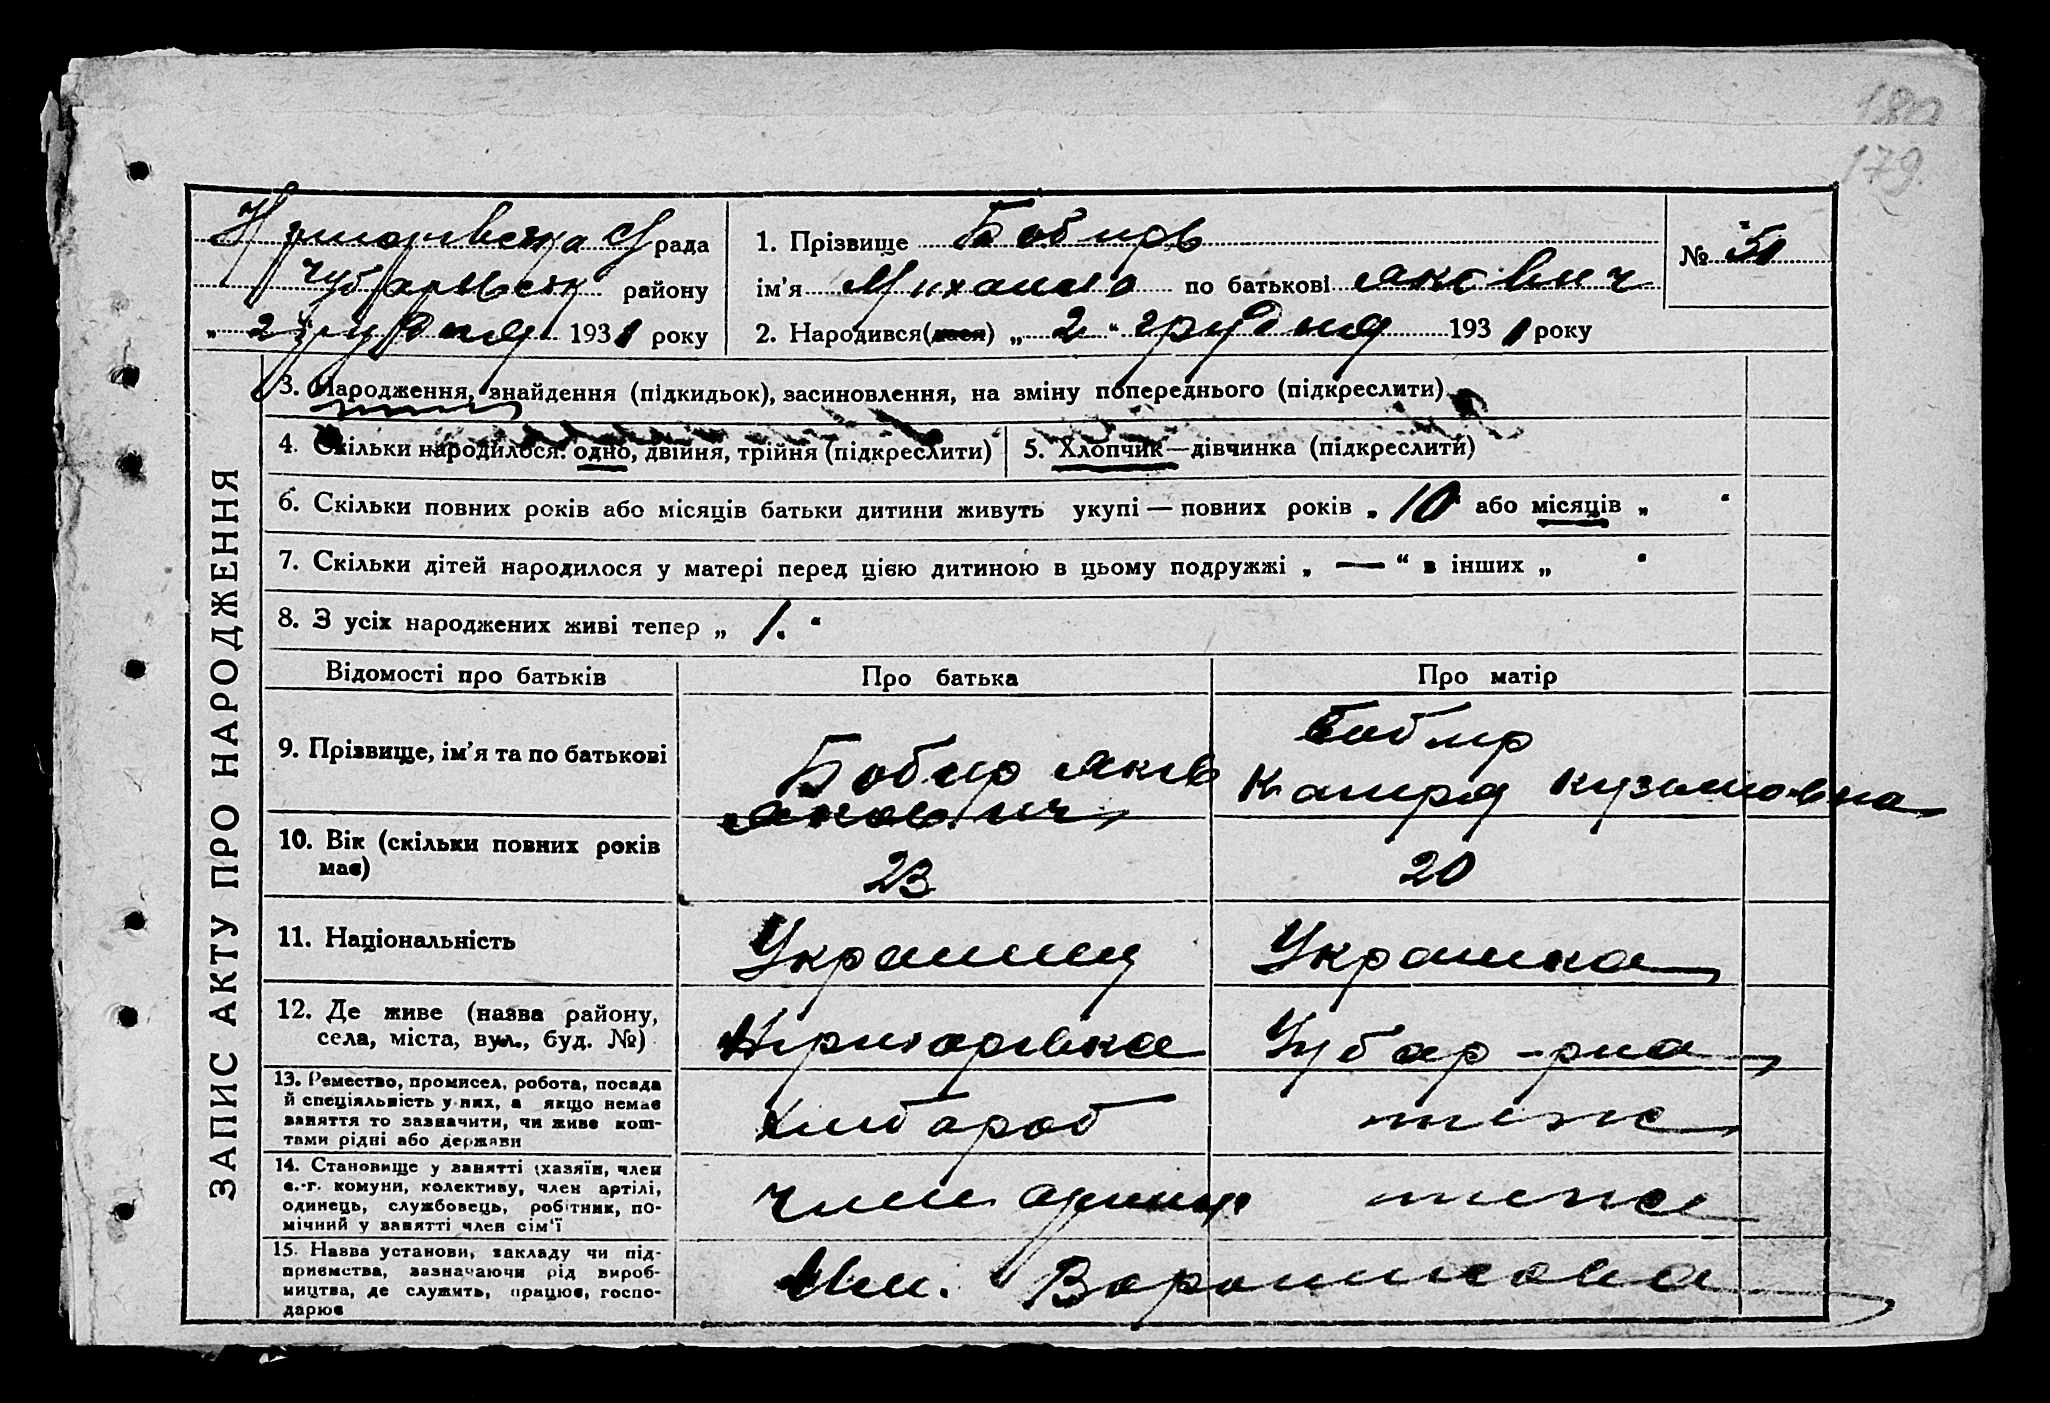 180
179.
Григорівська С/рада
Чубарівськ району
„ 2 " грудня 1931 року
1. Прізвище Бобирь
ім'я Михаило по батькові Якович
2. Народився(лася) „ 2 " грудня 1931 року
№ 51
ЗАПИС АКТУ ПРО НАРОДЖЕННЯ
3. Народження, знайдення (підкидьок), засиновлення, на зміну попереднього (підкреслити)
4. Скільки народилося: одно, двійня, трійня (підкреслити)
5. Хлопчик—дівчинка (підкреслити)
6. Скільки повних років або місяців батьки дитини живуть укупі — повних років „ 10 або місяців „ "
7. Скільки дітей народилося у матері перед цією дитиною в цьому подружжі „ — " в інших „ "
8. З усіх народжених живі тепер „ 1. "
Відомості про батьків Про батька Про матір
9. Прізвище, ім'я та по батькові
Бобир Яків
Якович
Бобир
Кузьмовна
10. Вік (скільки повних років
має)
23
20
11. Національність
Украинец
Украинка
12. Де живе (назва району,
села, міста, вул., буд. №)
Григорівка
Чубар - рна
13. Ремество, промисел, робота, посада
й спеціяльність у них, а якщо немає
заняття то зазначити, чи живе кош-
тами рідні або держави
хлібороб
теж
14. Становище у занятті (хазяїн, член
с.-г. комуни, колективу, член артілі,
одинець, службовець, робітник, по-
мічний у занятті член сім'ї
член артілі
теже
15. Назва установи, закладу чи під-
приємства, зазначаючи рід вироб-
ництва, де служить, працює, госпо-
дарює
Им. Ворошилова